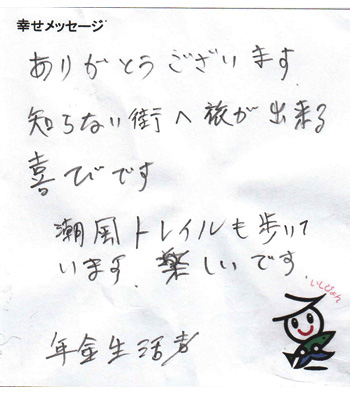 幸せメッセージ
ありがとうございます.
知らない街へ旅が出来る
喜びです
潮風トレイルも歩いて
います. 楽しいです.
いしぴょん
年金生活者